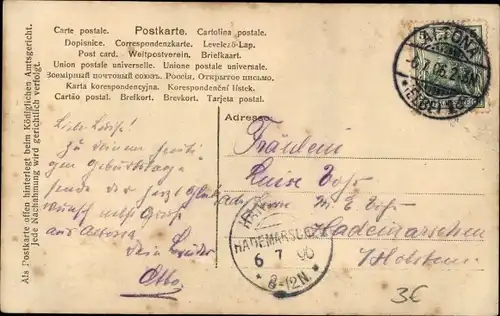 Carte postale. Postkarte. Cartolina postale.
Dopisnice. Correspondenzkarte. Levelező-Lap.
Post card. Weltpostverein. Briefkaart.
Union postale universelle. Unione postale universale.
Всемірный почтовый союзъ. Россія. Открытое письмо.
Karta korespondencyjna. Korespondenční lístek.
Cartão postal. Brefkort. Brevkort. Tarjeta postal.
Als Postkarte offen hinterlegt beim Königlichen Amtsgericht.
Jede Nachahmung wird gerichtlich verfolgt.
ALTONA
(ELBE)
Adresse:
Liebe Luise!
Zu deinem heuti
gen Geburtstage
sende dir herzl Glück
wunsch nebst Gruß
aus Altona
Dein Bruder
Otto.
Fräulein
Luise
M. E.
Hademarschen
Holstein
HADEMARSCHEN
6 7 06
8-12N.
3€